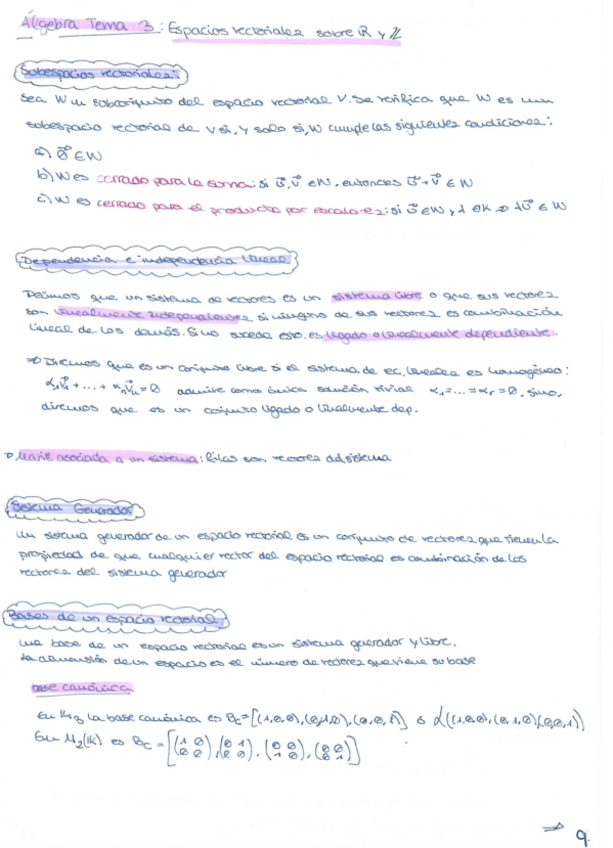 Álgebra Tema 3: Espacios vectoriales sobre ℝ y ℤ
Subespacios vectoriales:
Sea W un subconjunto del espacio vectorial V. Se verifica que W es un
subespacio vectorial de V si, y solo si, W cumple las siguientes condiciones:
a) 0⃗ ∈ W
b) W es cerrado para la suma: si u⃗, v⃗ ∈ W, entonces u⃗ + v⃗ ∈ W
c) W es cerrado para el producto por escalares: si u⃗ ∈ W y λ ∈ K ⇒ λu⃗ ∈ W
Dependencia e independencia lineal
Decimos que un sistema de vectores es un sistema libre o que sus vectores
son linealmente independientes si ninguno de sus vectores es combinación
lineal de los demás. Si no sucede esto, es ligado o linealmente dependiente.
⇒ Diremos que es un conjunto libre si el sistema de ec. lineales es homogéneo:
α₁v⃗₁ + ... + αₙv⃗ₙ = 0 admite como única solución trivial α₁ = ... = αᵣ = 0, sino,
diremos que es un conjunto ligado o linealmente dep.
asociada a un sistema: filas son vectores del sistema
Sistema Generador
Un sistema generador de un espacio vectorial es un conjunto de vectores que tienen la
propiedad de que cualquier vector del espacio vectorial es combinación de los
vectores del sistema generador
Bases de un espacio vectorial
Una base de un espacio vectorial es un sistema generador y libre.
La dimensión de un espacio es el número de vectores que tiene su base
base canónica
En la base canónica es Bc = [(1,0,0), (0,1,0), (0,0,1)] ó L((1,0,0), (0,1,0), (0,0,1))
En M₂(K) es Bc = [(1 0 / 0 0), (0 1 / 0 0), (0 0 / 1 0), (0 0 / 0 1)]
⇒ 9